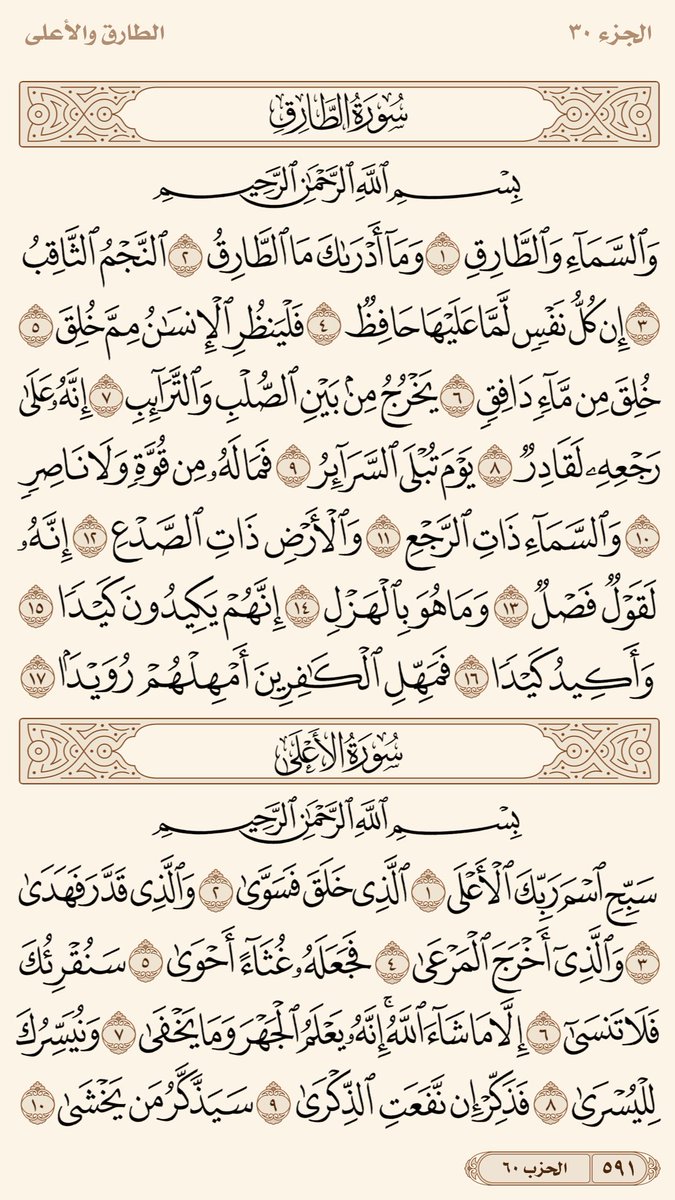 الجزء ٣٠ الطارق والأعلى
سُورَةُ الطَّارِقِ
بِسْمِ ٱللَّهِ ٱلرَّحْمَٰنِ ٱلرَّحِيمِ
وَٱلسَّمَآءِ وَٱلطَّارِقِ ١ وَمَآ أَدْرَىٰكَ مَا ٱلطَّارِقُ ٢ ٱلنَّجْمُ ٱلثَّاقِبُ
٣ إِن كُلُّ نَفْسٍ لَّمَّا عَلَيْهَا حَافِظٌ ٤ فَلْيَنظُرِ ٱلْإِنسَٰنُ مِمَّ خُلِقَ ٥
خُلِقَ مِن مَّآءٍ دَافِقٍ ٦ يَخْرُجُ مِنۢ بَيْنِ ٱلصُّلْبِ وَٱلتَّرَآئِبِ ٧ إِنَّهُۥ عَلَىٰ
رَجْعِهِۦ لَقَادِرٌ ٨ يَوْمَ تُبْلَى ٱلسَّرَآئِرُ ٩ فَمَا لَهُۥ مِن قُوَّةٍ وَلَا نَاصِرٍ
١٠ وَٱلسَّمَآءِ ذَاتِ ٱلرَّجْعِ ١١ وَٱلْأَرْضِ ذَاتِ ٱلصَّدْعِ ١٢ إِنَّهُۥ
لَقَوْلٌ فَصْلٌ ١٣ وَمَا هُوَ بِٱلْهَزْلِ ١٤ إِنَّهُمْ يَكِيدُونَ كَيْدًا ١٥
وَأَكِيدُ كَيْدًا ١٦ فَمَهِّلِ ٱلْكَٰفِرِينَ أَمْهِلْهُمْ رُوَيْدًۢا ١٧
سُورَةُ الأَعْلَىٰ
بِسْمِ ٱللَّهِ ٱلرَّحْمَٰنِ ٱلرَّحِيمِ
سَبِّحِ ٱسْمَ رَبِّكَ ٱلْأَعْلَى ١ ٱلَّذِى خَلَقَ فَسَوَّىٰ ٢ وَٱلَّذِى قَدَّرَ فَهَدَىٰ
٣ وَٱلَّذِىٓ أَخْرَجَ ٱلْمَرْعَىٰ ٤ فَجَعَلَهُۥ غُثَآءً أَحْوَىٰ ٥ سَنُقْرِئُكَ
فَلَا تَنسَىٰٓ ٦ إِلَّا مَا شَآءَ ٱللَّهُ ۚ إِنَّهُۥ يَعْلَمُ ٱلْجَهْرَ وَمَا يَخْفَىٰ ٧ وَنُيَسِّرُكَ
لِلْيُسْرَىٰ ٨ فَذَكِّرْ إِن نَّفَعَتِ ٱلذِّكْرَىٰ ٩ سَيَذَّكَّرُ مَن يَخْشَىٰ ١٠
٥٩١ الحزب ٦٠